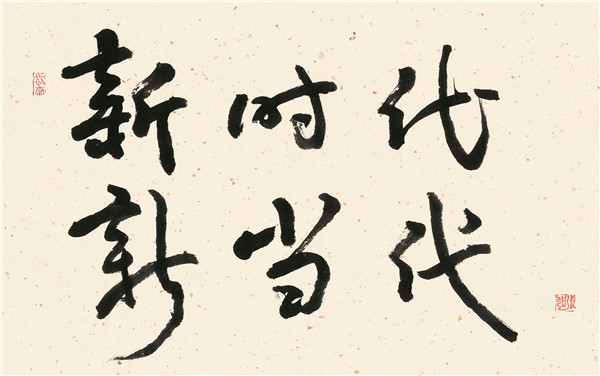 新时代
新当代